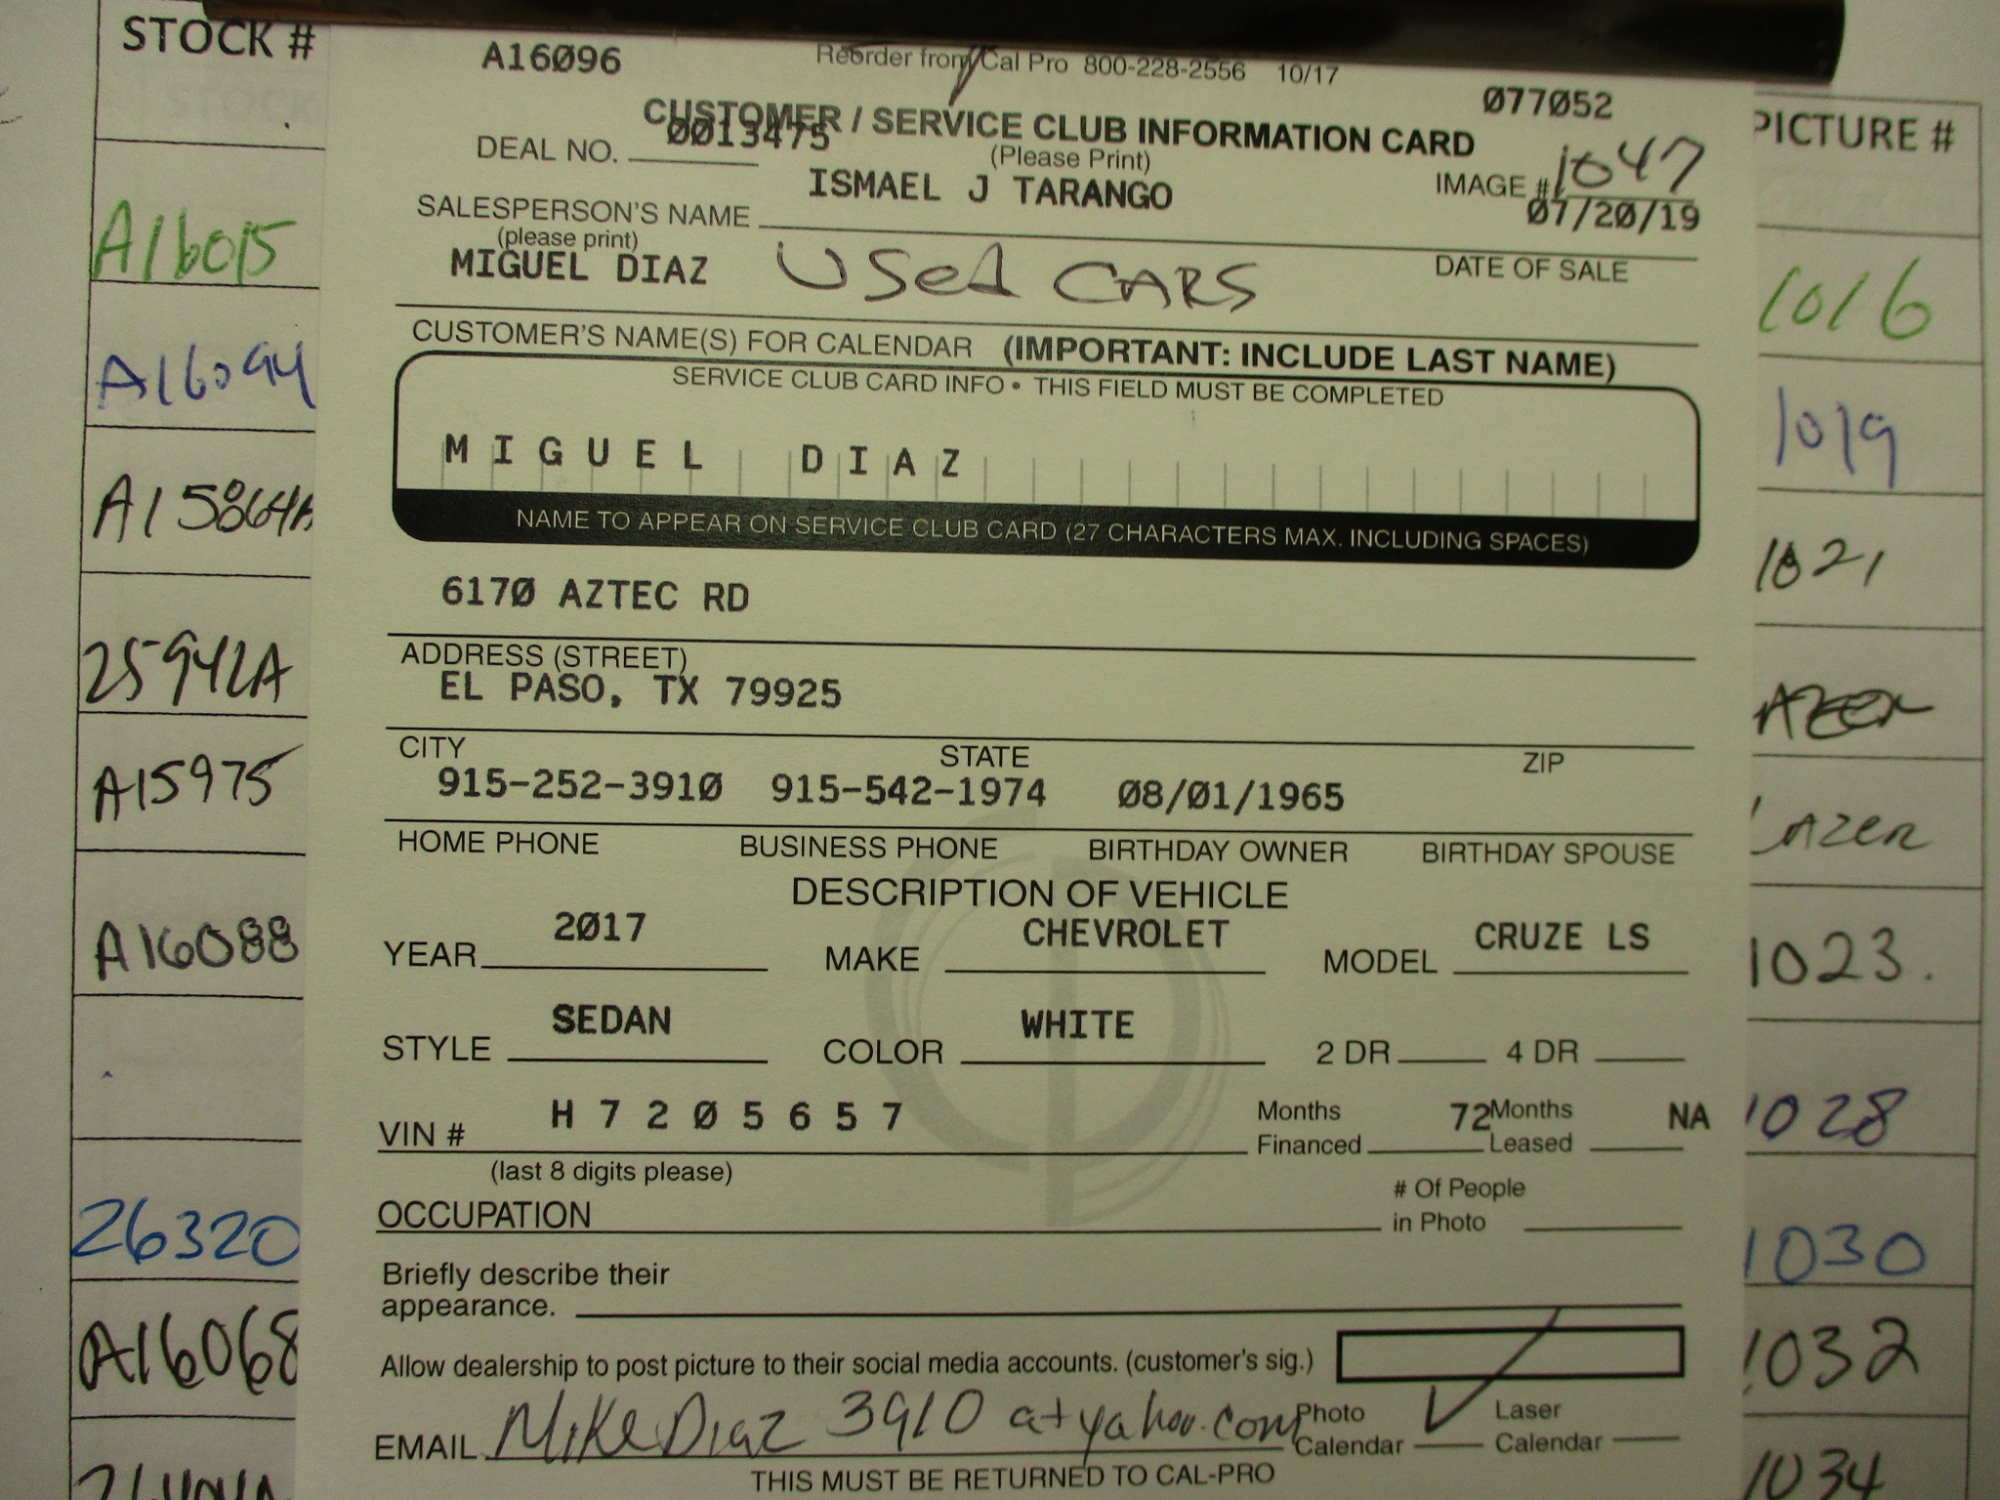 STOCK #
A16015
A16094
A15864A
25942A
A15975
A16088
26320
A16068
A16096
Reorder from Cal Pro 800-228-2556 10/17
077052
CUSTOMER / SERVICE CLUB INFORMATION CARD
0013475
DEAL NO.
(Please Print)
1047
IMAGE #
ISMAEL J TARANGO
07/20/19
SALESPERSON'S NAME
(please print)
MIGUEL DIAZ USed CARS
DATE OF SALE
CUSTOMER'S NAME(S) FOR CALENDAR (IMPORTANT: INCLUDE LAST NAME)
SERVICE CLUB CARD INFO • THIS FIELD MUST BE COMPLETED
MIGUEL DIAZ
NAME TO APPEAR ON SERVICE CLUB CARD (27 CHARACTERS MAX. INCLUDING SPACES)
6170 AZTEC RD
ADDRESS (STREET)
EL PASO, TX 79925
CITY STATE ZIP
915-252-3910 915-542-1974 08/01/1965
HOME PHONE BUSINESS PHONE BIRTHDAY OWNER BIRTHDAY SPOUSE
DESCRIPTION OF VEHICLE
YEAR 2017 MAKE CHEVROLET MODEL CRUZE LS
STYLE SEDAN COLOR WHITE 2 DR 4 DR
VIN # H7205657 Months Financed 72 Months Leased NA
(last 8 digits please)
OCCUPATION # Of People in Photo
Briefly describe their
appearance.
Allow dealership to post picture to their social media accounts. (customer's sig.)
EMAIL MikeDiaz 3910 at yahoo.com Photo Calendar Laser Calendar
THIS MUST BE RETURNED TO CAL-PRO
PICTURE #
1016
1019
1021
LAZER
1023.
1028
1030
1032
1034